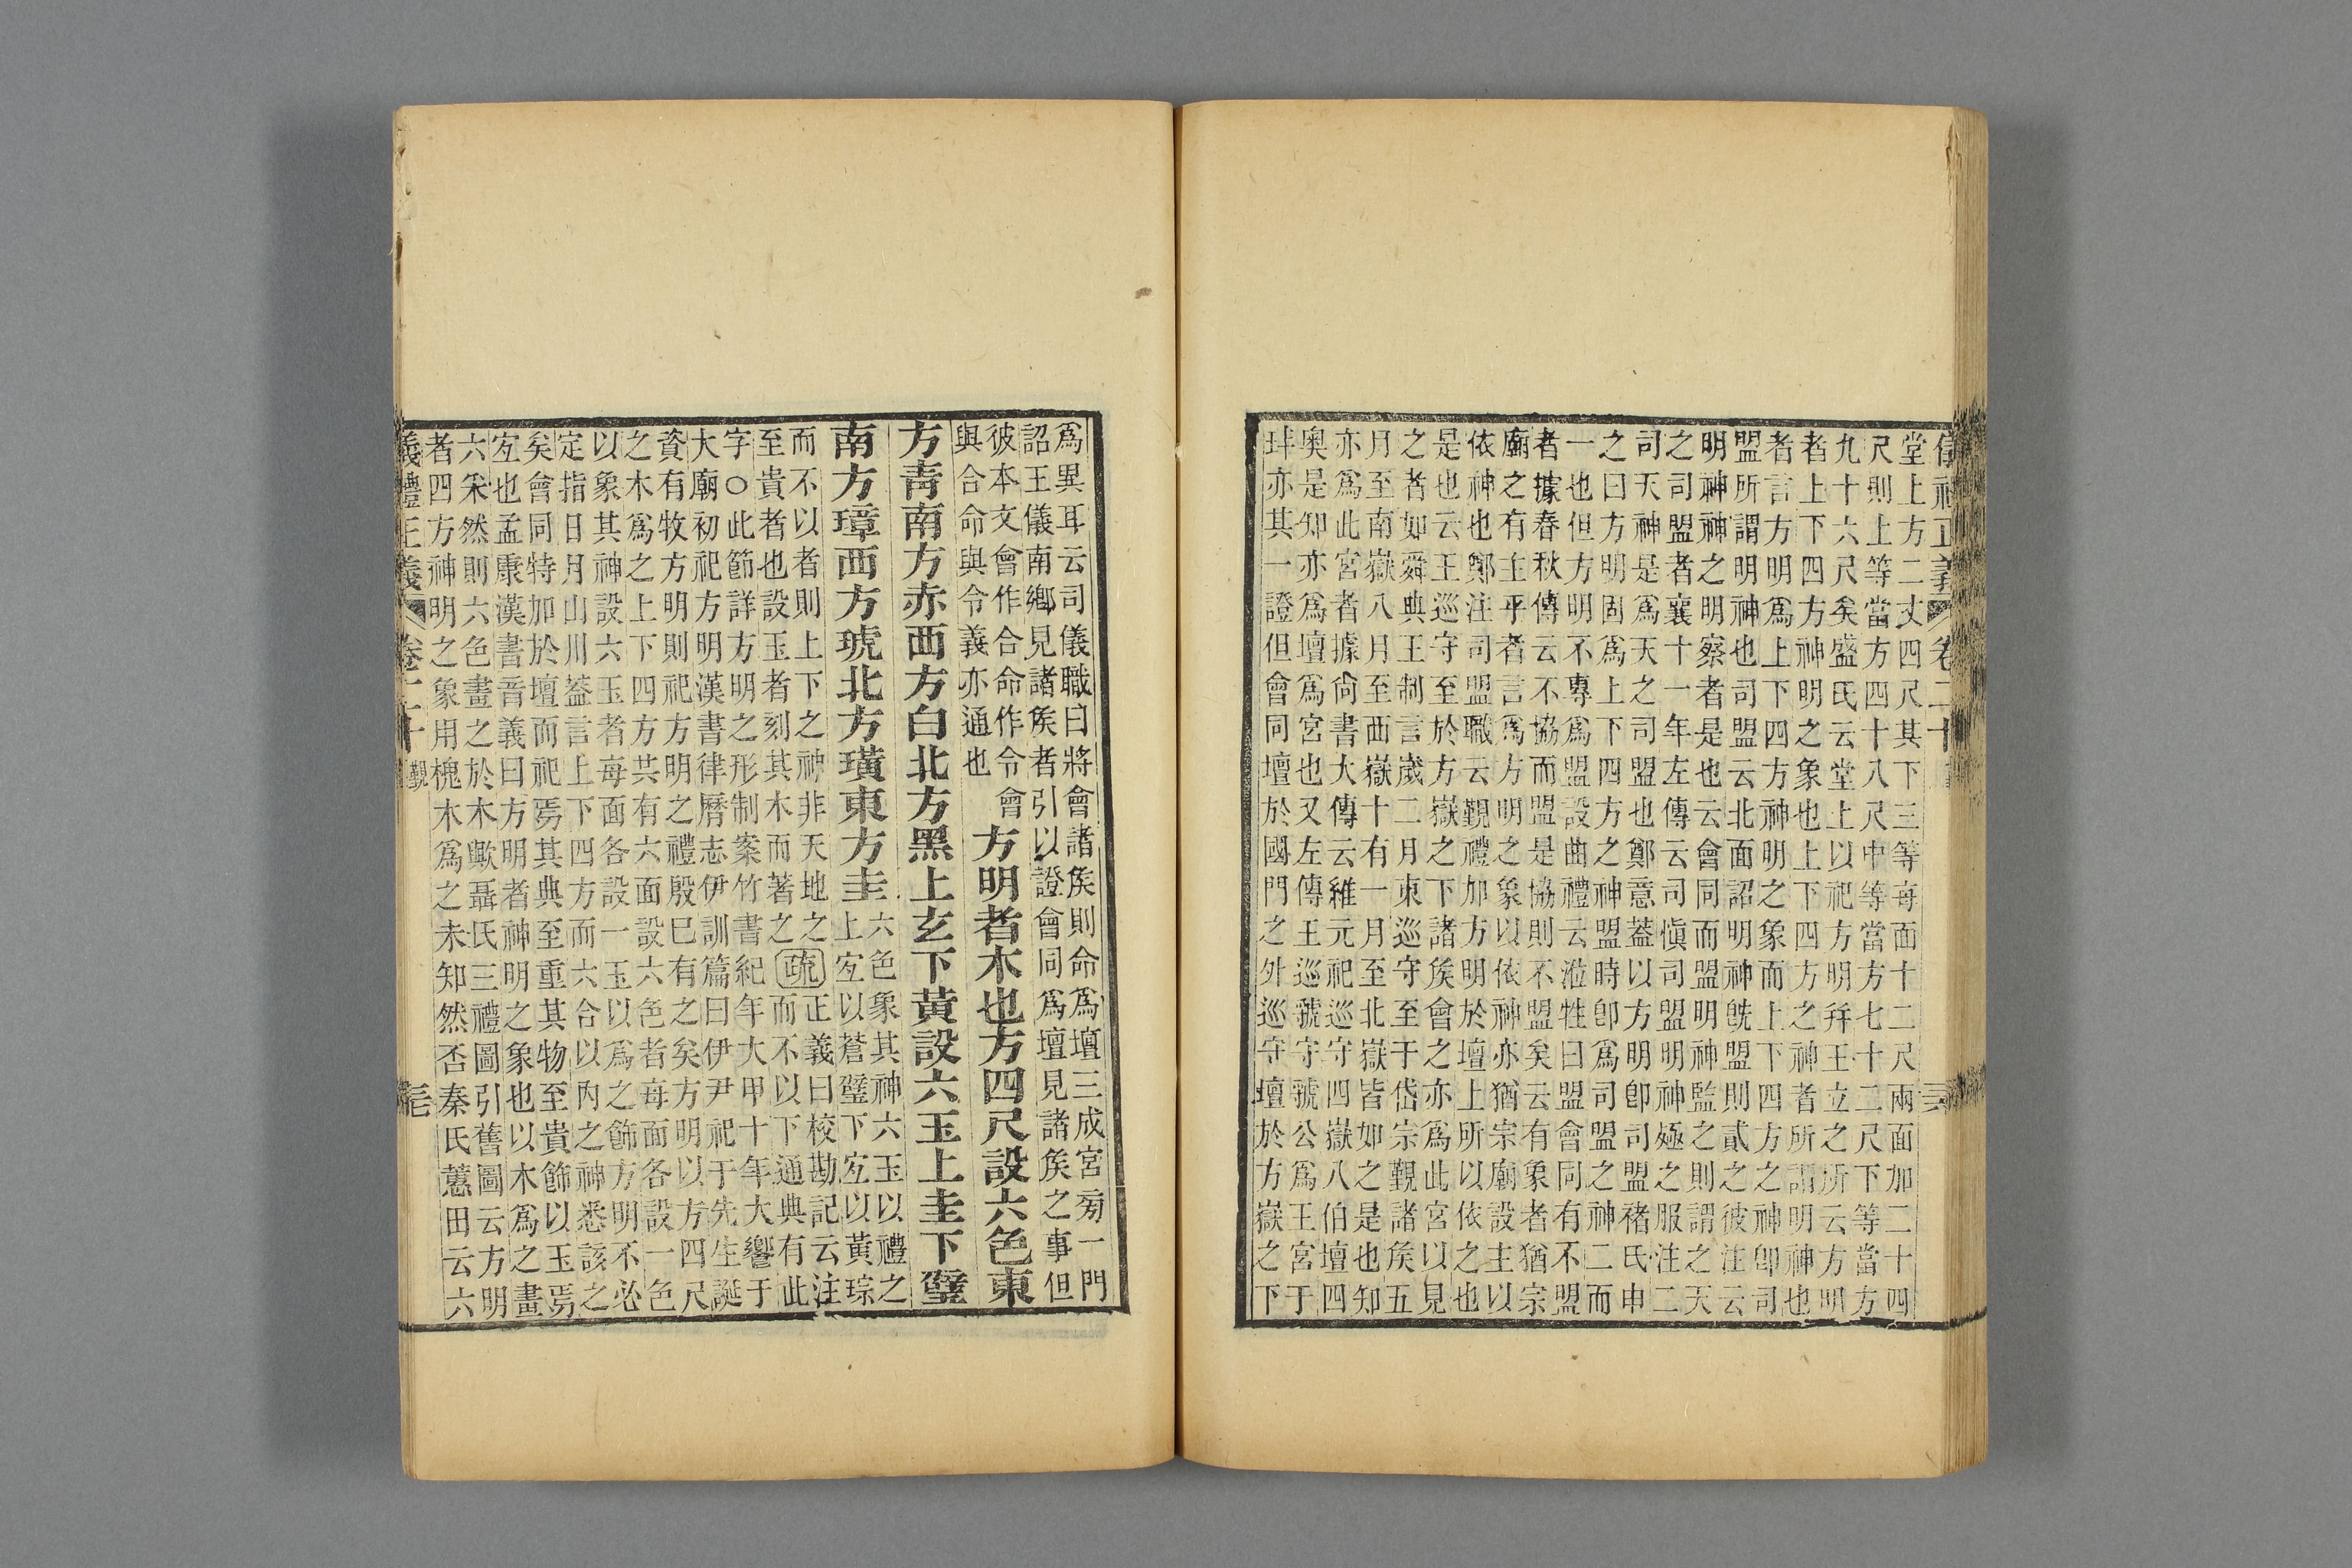 堂上方二丈四尺其下三等每面十二尺兩面加二十四
尺則上等當方四十八尺中等當方七十二尺下等當方
九十六尺矣盛氏云堂上以祀方明幷王立之所云方明
者上下四方神明之象也上下四方之神者所謂明神也
者言方明爲上下四方神明之象而上下四方之神卽司
盟所謂明神也司盟云北面詔明神旣盟則貳之彼注云
明神神之明察者是也云會同而盟明神監之則謂之天
之司盟者襄十一年左傳云司愼司盟明神殛之服注二
司天神是爲天之司盟也鄭意蓋以方明卽司盟褚氏申
之曰方明固爲上下四方之神盟時卽爲司盟之神二而
一也但方明不專爲盟設曲禮云涖牲曰盟會同有不盟
者據春秋傳云不協而盟是協則不盟矣云有象者猶宗
廟之有主乎者言爲方明之象以依神亦猶宗廟設主以
依神也鄭注司盟職云覲禮加方明於壇上所以依之也
是也云王巡守至於方嶽之下諸矦會之亦爲此宮以見
之者如舜典王制言歲二月東巡守至于岱宗覲諸矦五
月至南嶽八月至西嶽十有一月至北嶽皆如之是也知
亦爲此宮者據尙書大傳云維元祀巡守四嶽八伯壇四
奧是知亦爲壇爲宮也又左傳王巡虢守虢公爲王宮于
玤亦其一證但會同壇於國門之外巡守壇於方嶽之下
爲異耳云司儀職曰將會諸矦則命爲壇三成宮旁一門
詔王儀南鄉見諸矦者引以證會同爲壇見諸矦之事但
彼本文會作合命作令會
與合命與令義亦通也
方明者木也方四尺設六色東
方靑南方赤西方白北方黑上玄下黃設六玉上圭下璧
南方璋西方琥北方璜東方圭
六色象其神六玉以禮之
上宜以蒼璧下宜以黃琮
而不以者則上下之神非天地之
至貴者也設玉者刻其木而著之
疏
正義曰校勘記云注
而不以下通典有此
字○此節詳方明之形制案竹書紀年大甲十年大饗于
大廟初祀方明漢書律曆志伊訓篇曰伊尹祀于先生誕
資有牧方明則祀方明之禮殷巳有之矣方明以方四尺
之木爲之上下四方共有六面設六色者每面各設一色
以象其神設六玉者每面各設一玉以爲之飾方明不必
定指日月山川蓋言上下四方而六合以內之神悉該之
矣會同特加於壇而祀焉其典至重其物至貴飾以玉焉
宜也孟康漢書音義曰方明者神明之象也以木爲之畫
六采然則六色畫之於木歟聶氏三禮圖引舊圖云方明
者四方神明之象用槐木爲之未知然否秦氏蕙田云六
儀禮正義 卷二十 覲